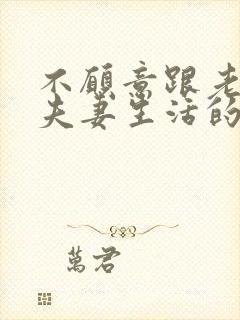 不愿意跟老
夫妻生活的
萬君